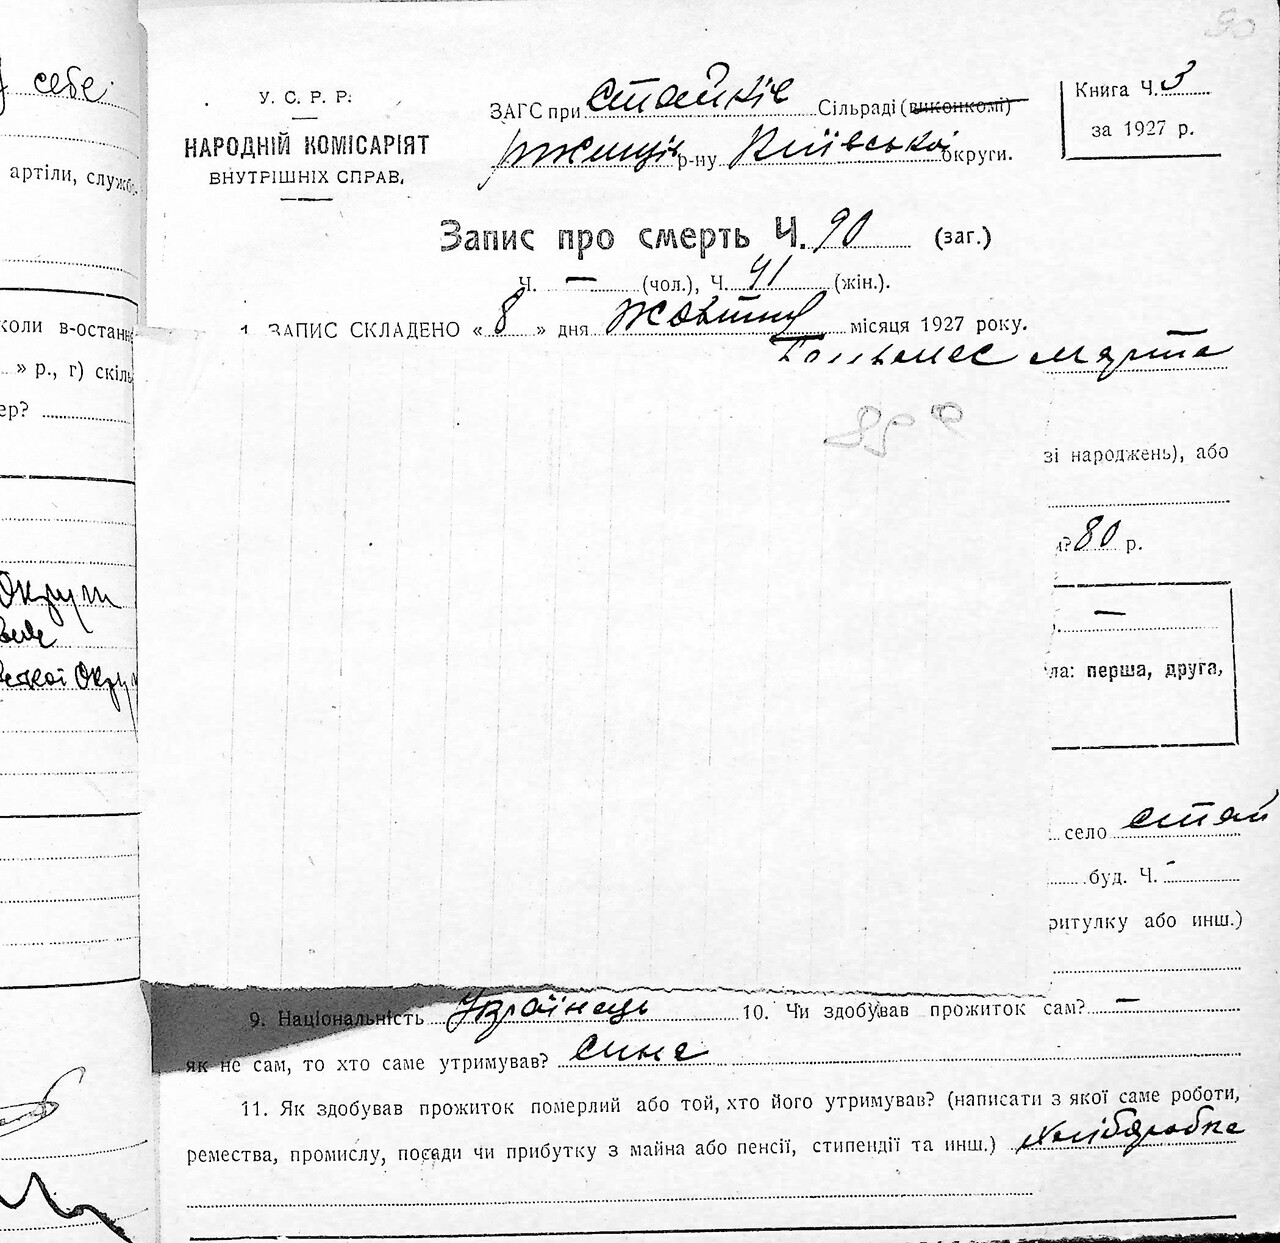 90
себе
артіли, служб
коли в-останнє
» р., г) скіль
ер?
Округи
Округ
У. С. Р. Р.
НАРОДНІЙ КОМІСАРІЯТ
ВНУТРІШНІХ СПРАВ.
ЗАГС при Стайків Сільраді (виконкомі)
Ржищів р-ну Київська округи.
Книга Ч. 3
за 1927 р.
Запис про смерть Ч. 90 (заг.)
Ч. — (чол.), Ч. 41 (жін.).
1. ЗАПИС СКЛАДЕНО « 8 » дня Жовтня місяця 1927 року.
Марта
зі народжень), або
80 р.
—
ла: перша, друга,
село Стай
буд. Ч. -
ритулку або инш.)
9. Національність Українець 10. Чи здобував прожиток сам? —
як не сам, то хто саме утримував? сине
11. Як здобував прожиток померлий або той, хто його утримував? (написати з якої саме роботи,
ремества, промислу, посади чи прибутку з майна або пенсії, стипендії та инш.) Хліборобка